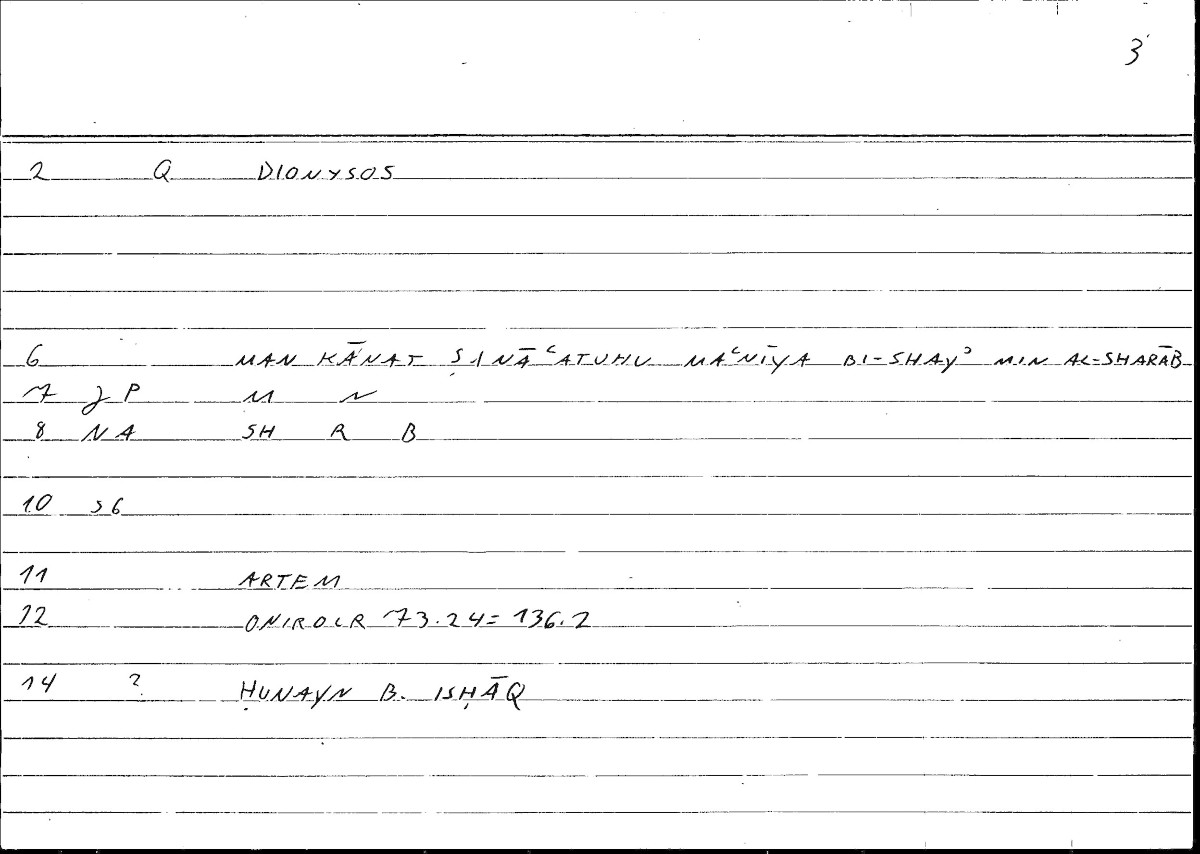 3
2 Q DIONYSOS
6 MAN KĀNAT ṢINĀʿATUHU MAʿNĪYA BI-SHAYʾ MIN AL-SHARĀB
7 JP M N
8 NA SH R B
10 S6
11 ARTEM
12 ONIROCR 73.24=136.2
14 ? ḤUNAYN B. ISḤĀQ